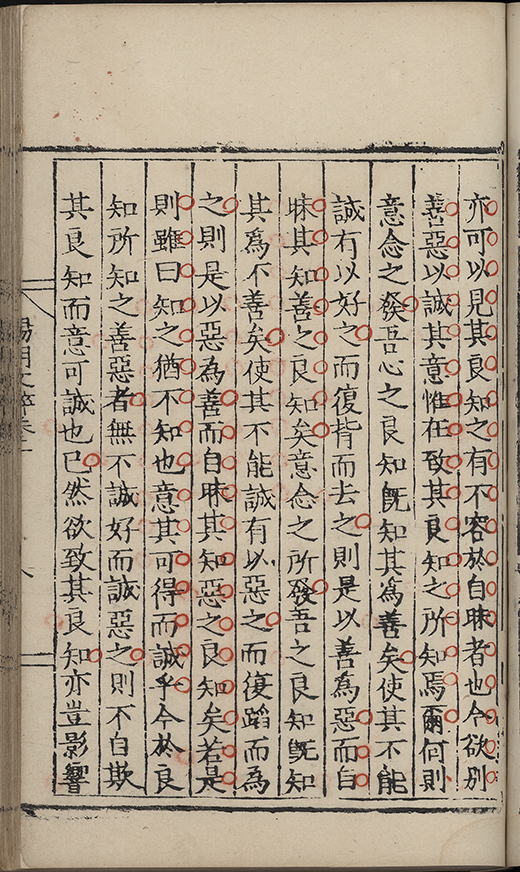 亦可以見其良知之有不容於自昧者也今欲別
善惡以誠其意惟在致其良知之所知焉爾何則
意念之發吾心之良知旣知其爲善矣使其不能
誠有以好之而復背而去之則是以善爲惡而自
昧其知善之良知矣意念之所發吾之良知旣知
其爲不善矣使其不能誠有以惡之而復蹈而爲
之則是以惡為善而自昧其知惡之良知矣若是
則雖曰知之猶不知也意其可得而誠乎今於良
知所知之善惡者無不誠好而誠惡之則不自欺
其良知而意可誠也已然欲致其良知亦豈影響
陽明文粹卷